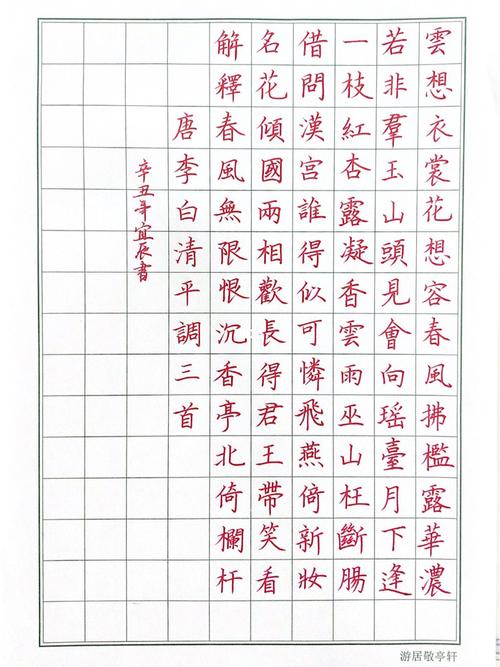 雲想衣裳花想容春風拂檻露華濃
若非羣玉山頭見會向瑶臺月下逢
一枝紅杏露凝香雲雨巫山枉斷腸
借問漢宫誰得似可憐飛燕倚新妝
名花傾國兩相歡長得君王帶笑看
解釋春風無限恨沉香亭北倚欄杆
唐李白清平調三首
辛丑年宜辰書
游居敬亭轩